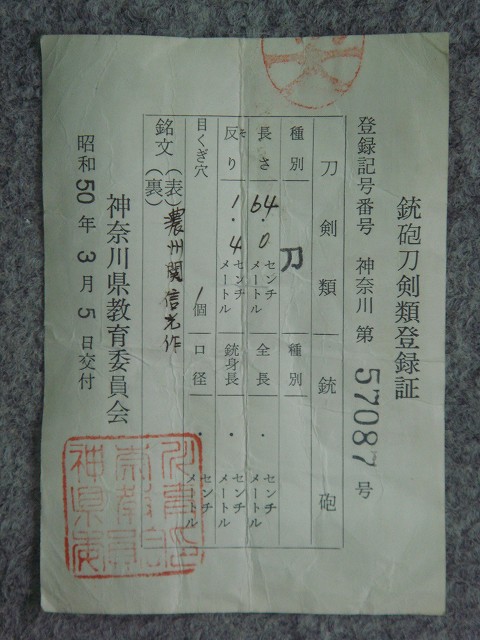 銃砲刀剣類登録証
登録記号番号 神奈川 第 57087 号
刀剣類 銃砲
種別 刀 種別
長さ 64.0 センチメートル 全長 ・ センチメートル
反り 1.4 センチメートル 銃身長 ・ センチメートル
目くぎ穴 1個 口径 ・ センチメートル
銘文(表)濃州関信光作
(裏)
神奈川県教育委員会
昭和50年3月5日交付